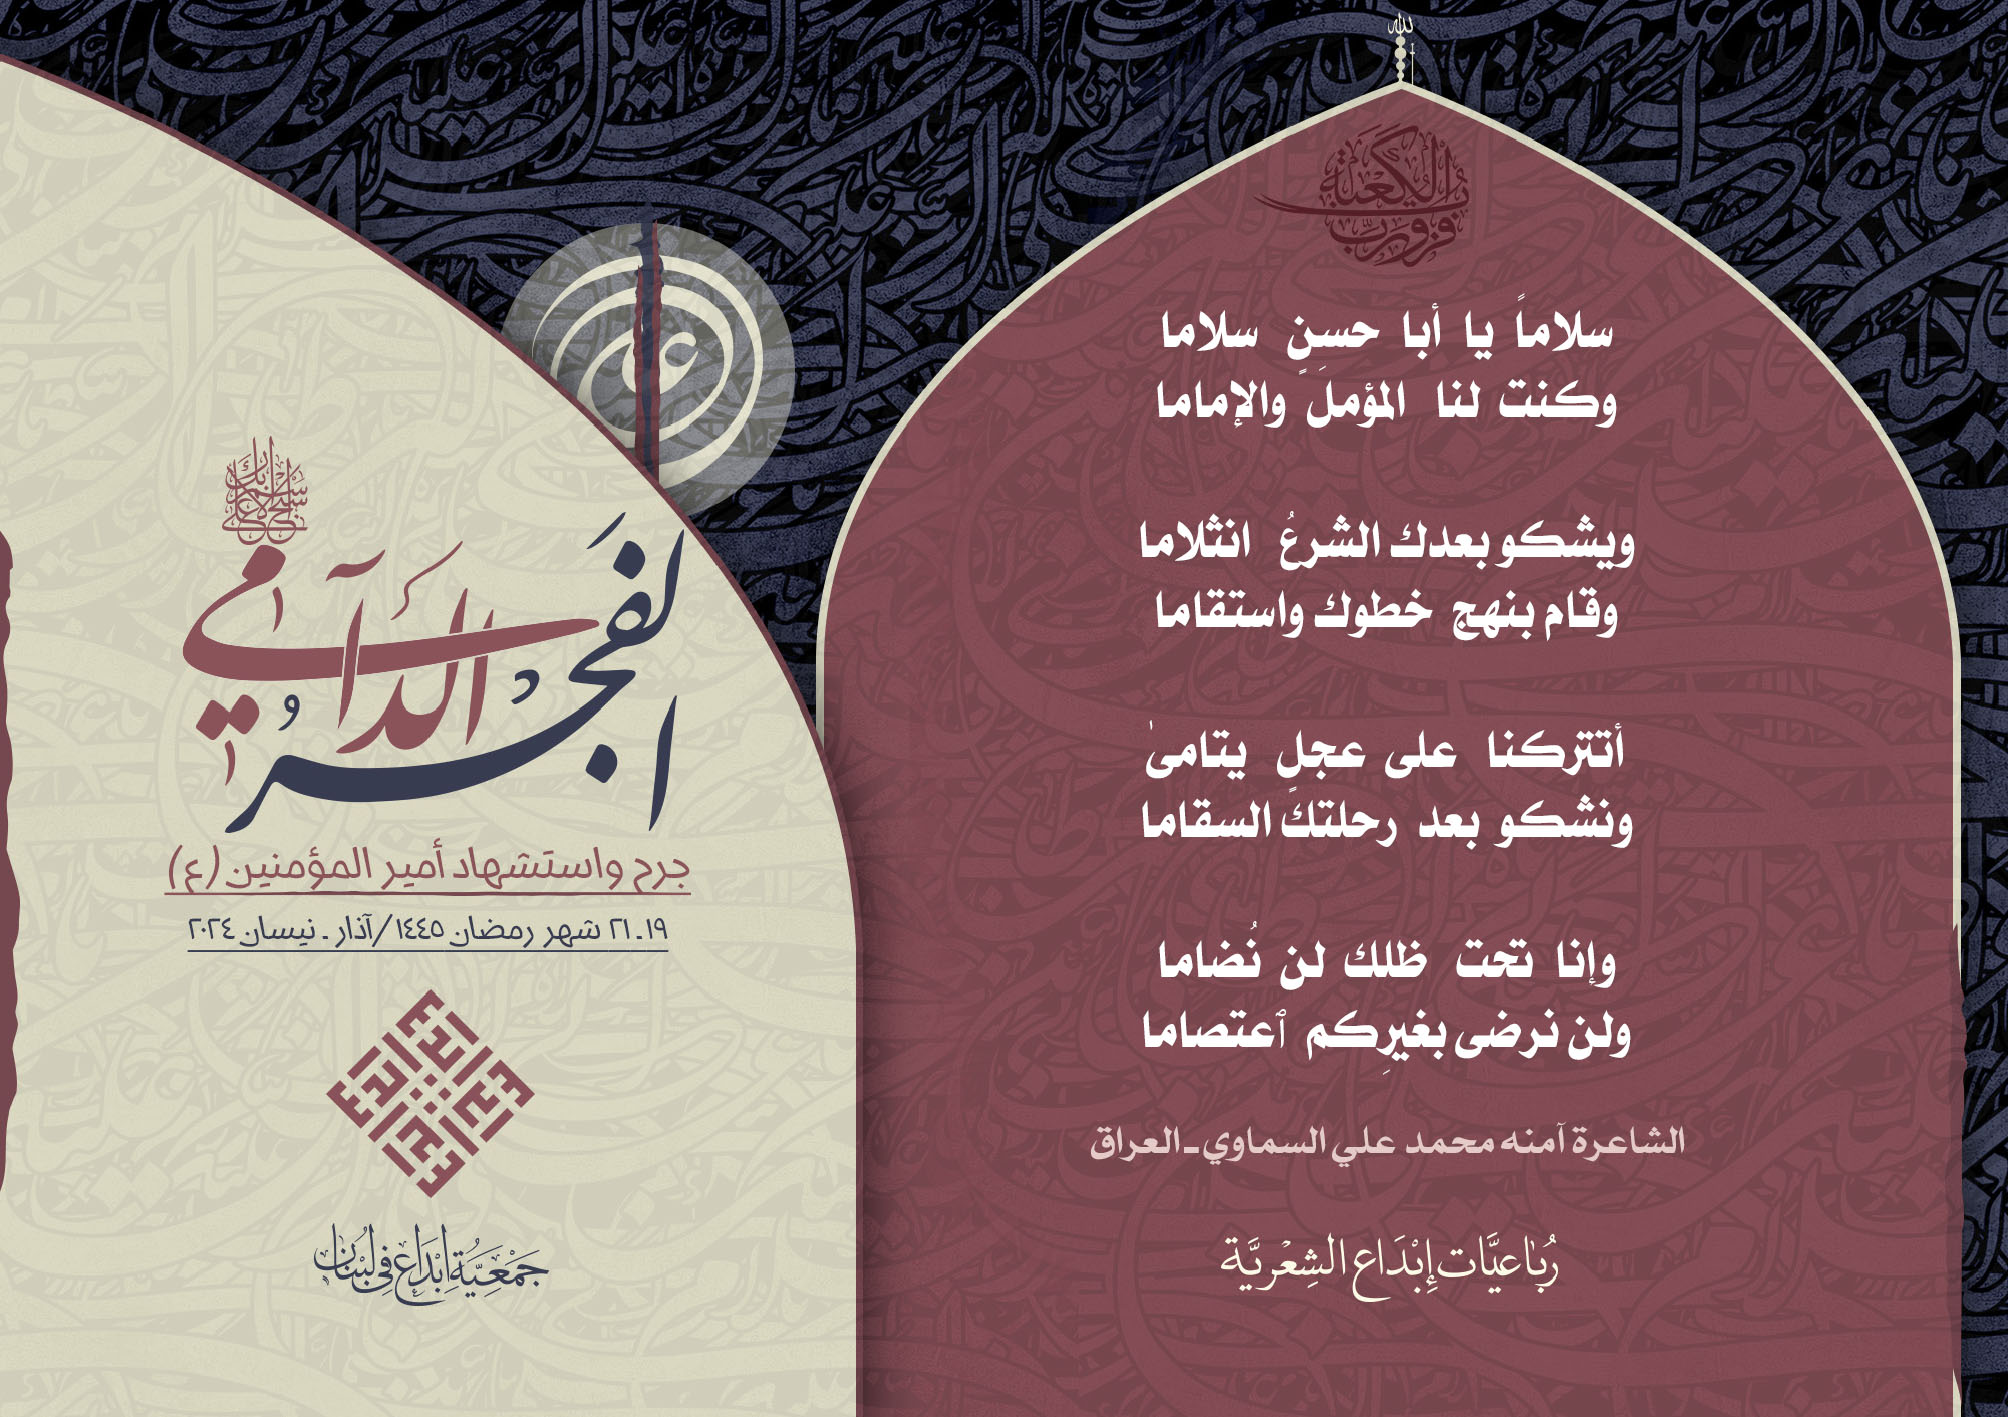 الله
فزت ورب الكعبة
سلاماً يا أبا حسنٍ سلاما
وكنت لنا المؤمل والإماما
ويشكو بعدك الشرعُ انثلاما
وقام بنهج خطوك واستقاما
أتتركنا على عجلٍ يتامىٰ
ونشكو بعد رحلتك السقاما
وإنا تحت ظلك لن نُضاما
ولن نرضى بغيرِكم ٱعتصاما
الشاعرة آمنه محمد علي السماوي-العراق
رُبَاعيَّات إِبْدَاع الشِعْريَّة
علي
سَبِّحِ اسْمَ رَبِّكَ الأَعْلَى
الفَجرُ الدَّامي
جرح واستشهاد أمير المؤمنين (ع)
١٩-٢١ شهر رمضان ١٤٤٥/آذار-نيسان ٢٠٢٤
جَمْعِيَّة إِبْدَاع في لُبْنَان